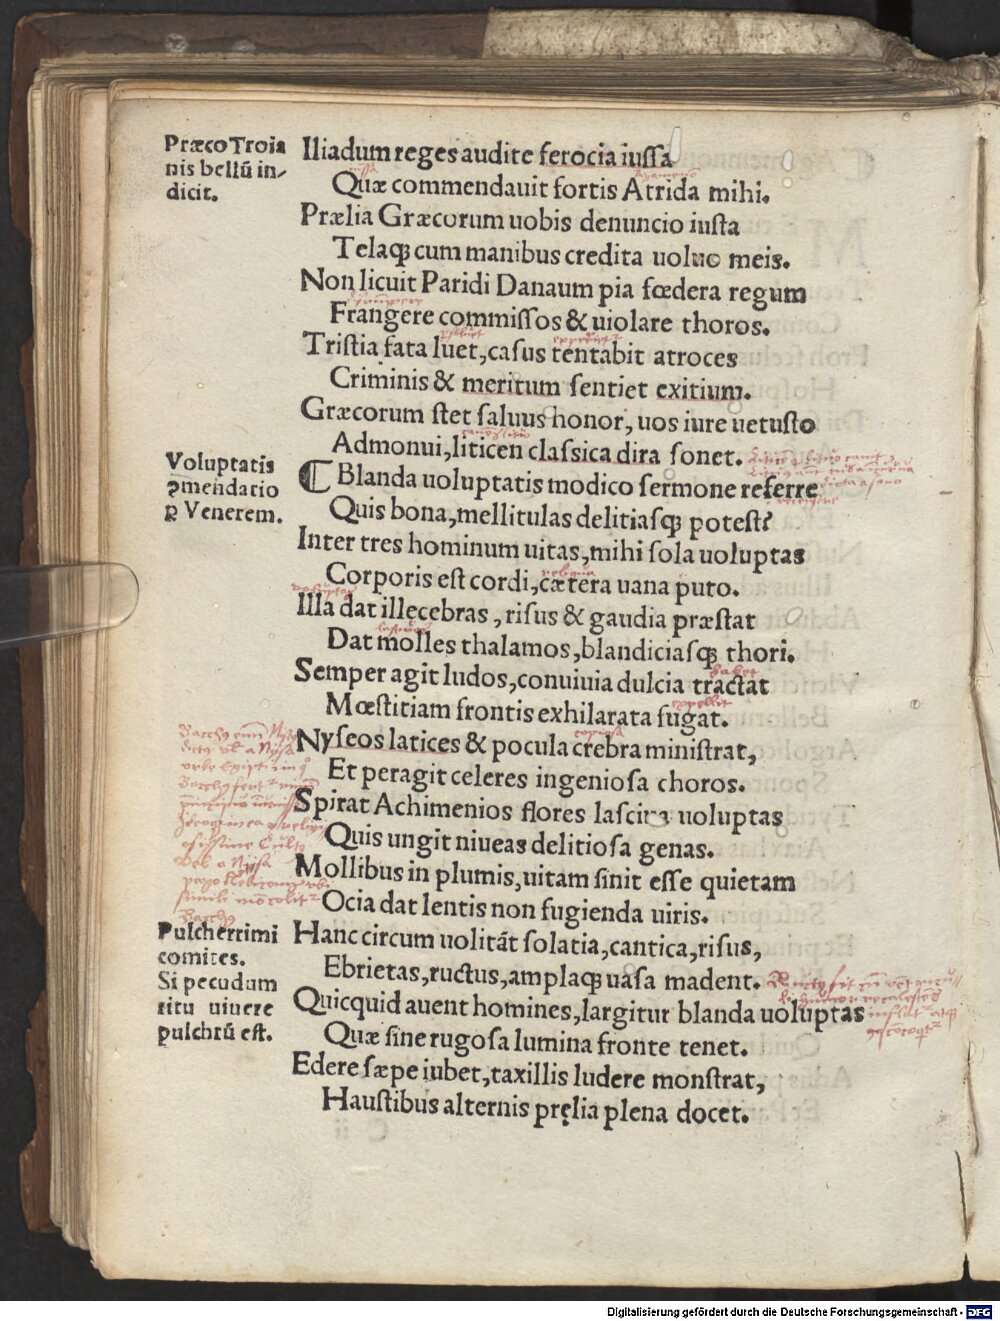 Præco Troia
nis bellū in-
dicit.
Iliadum reges audite ferocia iussa
Quæ commendauit fortis Atrida mihi.
Prælia Græcorum uobis denuncio iusta
Telaqꝫ cum manibus credita uoluo meis.
Non licuit Paridi Danaum pia fœdera regum
Frangere commissos & uiolare thoros.
Tristia fata luet, casus tentabit atroces
Criminis & meritum sentiet exitium.
Græcorum stet saluus honor, uos iure uetusto
Admonui, liticen classica dira sonet.
Voluptatis
ꝯmendatio
ꝑ Venerem.
⸿ Blanda uoluptatis modico sermone referre
Quis bona, mellitulas delitiasqꝫ potest?
Inter tres hominum uitas, mihi sola uoluptas
reliqua
Corporis est cordi, cætera uana puto.
Illa dat illecebras, risus & gaudia præstat
Dat molles thalamos, blandiciasqꝫ thori.
Semper agit ludos, conuiuia dulcia tractat
expellit
Mœstitiam frontis exhilarata fugat.
copiosa
Nyseos latices & pocula crebra ministrat,
Et peragit celeres ingeniosa choros.
Spirat Achimenios flores lasciua uoluptas
Quis ungit niueas delitiosa genas.
Mollibus in plumis, uitam sinit esse quietam
Ocia dat lentis non fugienda uiris.
Pulcherrimi
comites.
Si pecudum
ritu uiuere
pulchrū est.
Hanc circum uolitāt solatia, cantica, risus,
Ebrietas, ructus, amplaqꝫ uasa madent.
Quicquid auent homines, largitur blanda uoluptas
Quæ sine rugosa lumina fronte tenet.
Edere sæpe iubet, taxillis ludere monstrat,
Haustibus alternis pręlia plena docet.
Digitalisierung gefördert durch die Deutsche Forschungsgemeinschaft - DFG